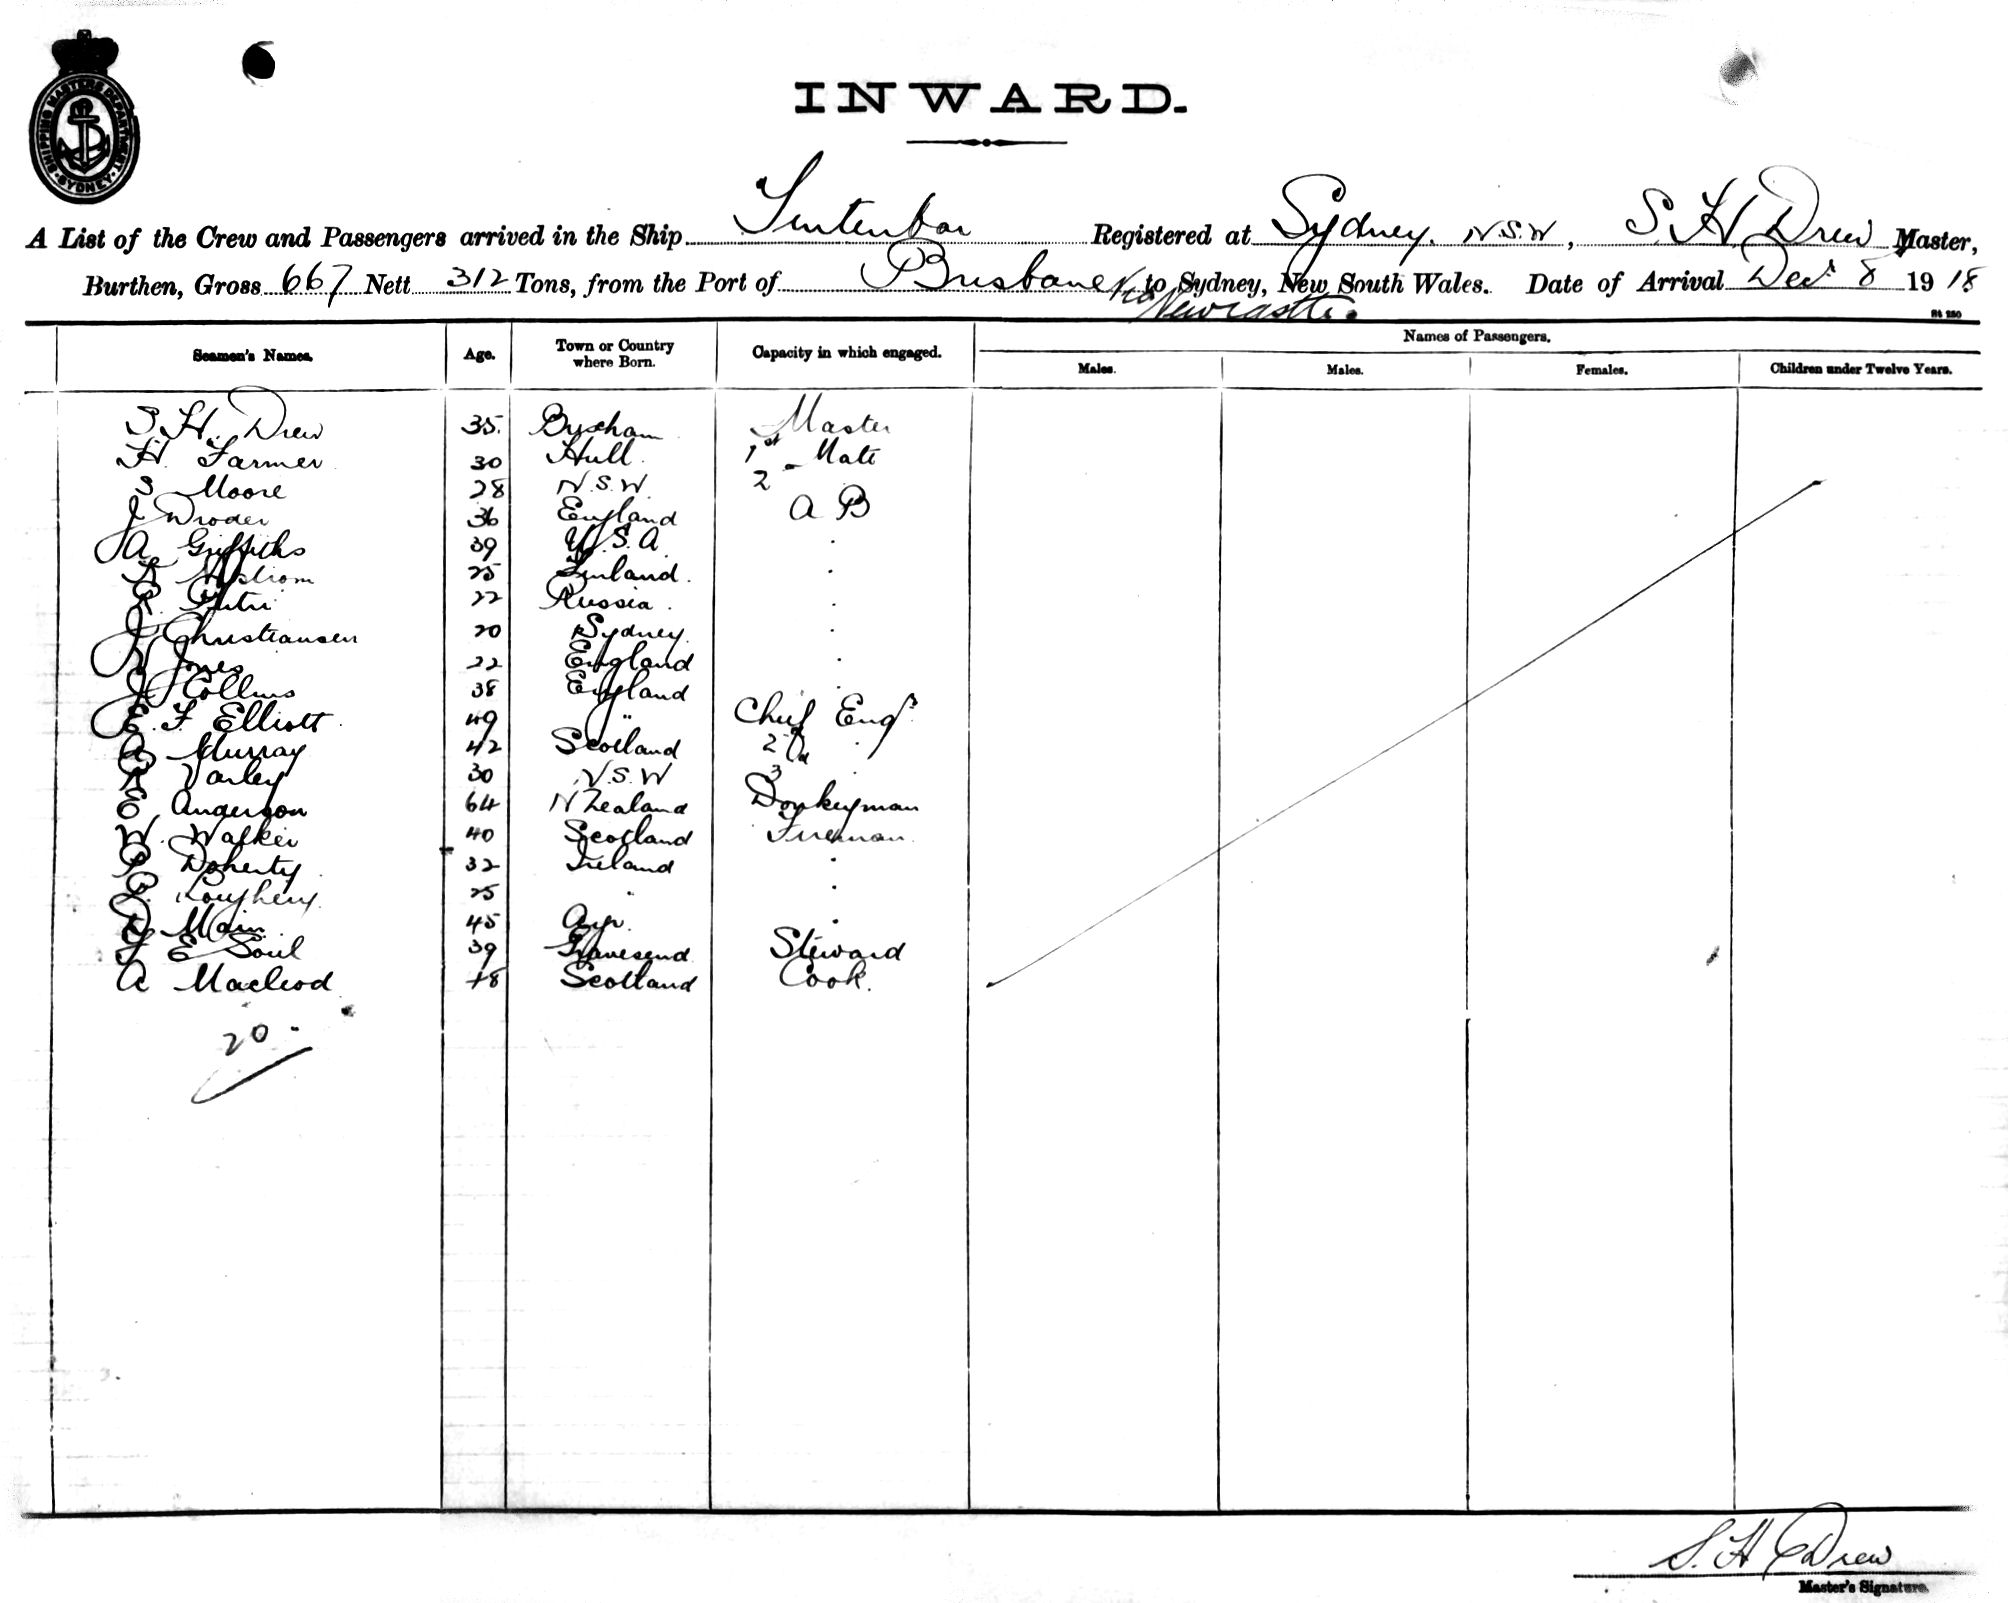 SHIPPING MASTERS DEPARTMENT
SYDNEY
INWARD.
A List of the Crew and Passengers arrived in the Ship Tintenbar Registered at Sydney. N.S.W, S. H. Drew Master,
Burthen, Gross 667 Nett 312 Tons, from the Port of Brisbane via Newcastle. to Sydney, New South Wales. Date of Arrival Decr 8 1918
Seamen's Names. Age. Town or Country where Born. Capacity in which engaged. Names of Passengers.
Males. Males. Females. Children under Twelve Years.
S. H. Drew 35. Brixham Master
H. Farmer 30 Hull. 1st Mate
S Moore 28 N.S.W. 2 "
J 36 England A B
A Griffiths 39 U.S.A. "
25 Finland. "
22 Russia. "
J Christiansen 20 Sydney. "
Jones 22 England "
J Collins 38 England "
E. F. Elliott. 49 " Chief Engr
A Murray 42 Scotland 2nd "
R Varley 30 N.S.W 3 "
E Anderson 64 N Zealand Donkeyman
W. Walker 40 Scotland Fireman
P Doherty 32 Ireland "
P. 25 " "
D Main 45 Ayr. "
E Soul 39 Gravesend Steward
A Macleod 48 Scotland Cook.
20
S. H. Drew
Master's Signature.